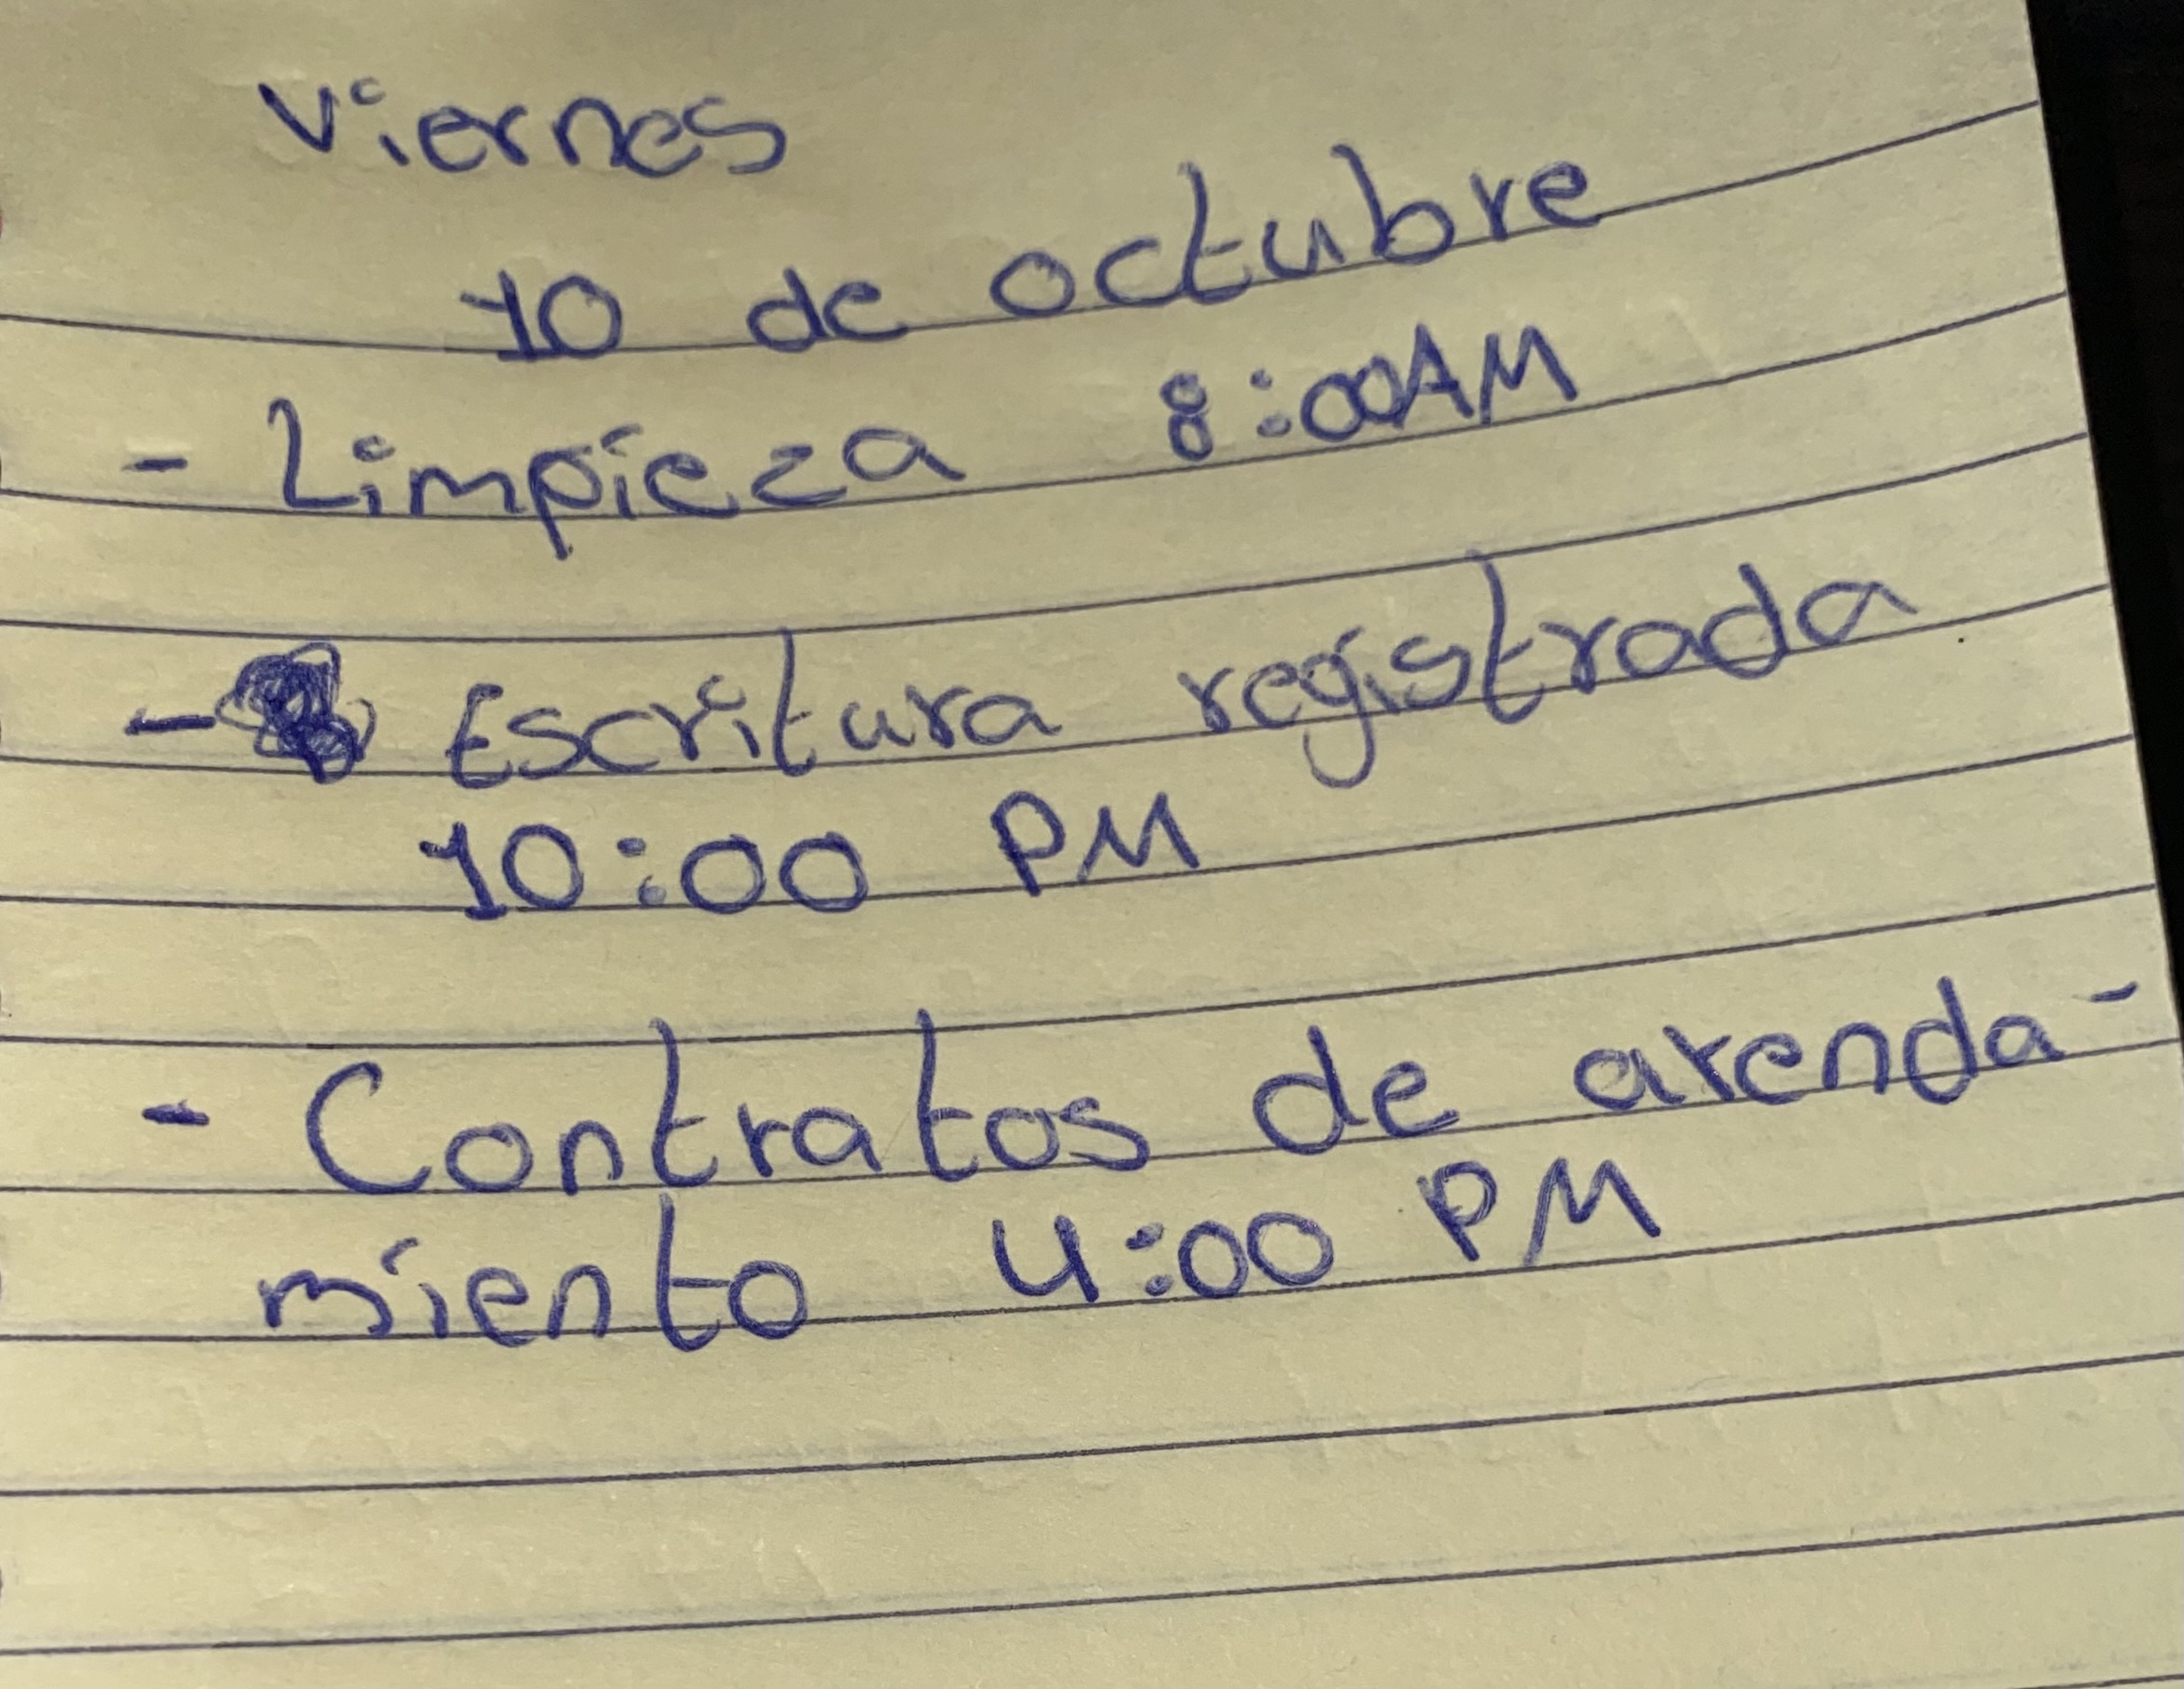 Viernes
10 de octubre
- Limpieza 8:00AM
- Escritura registrada
10:00 PM
- Contratos de arenda-
miento 4:00 PM